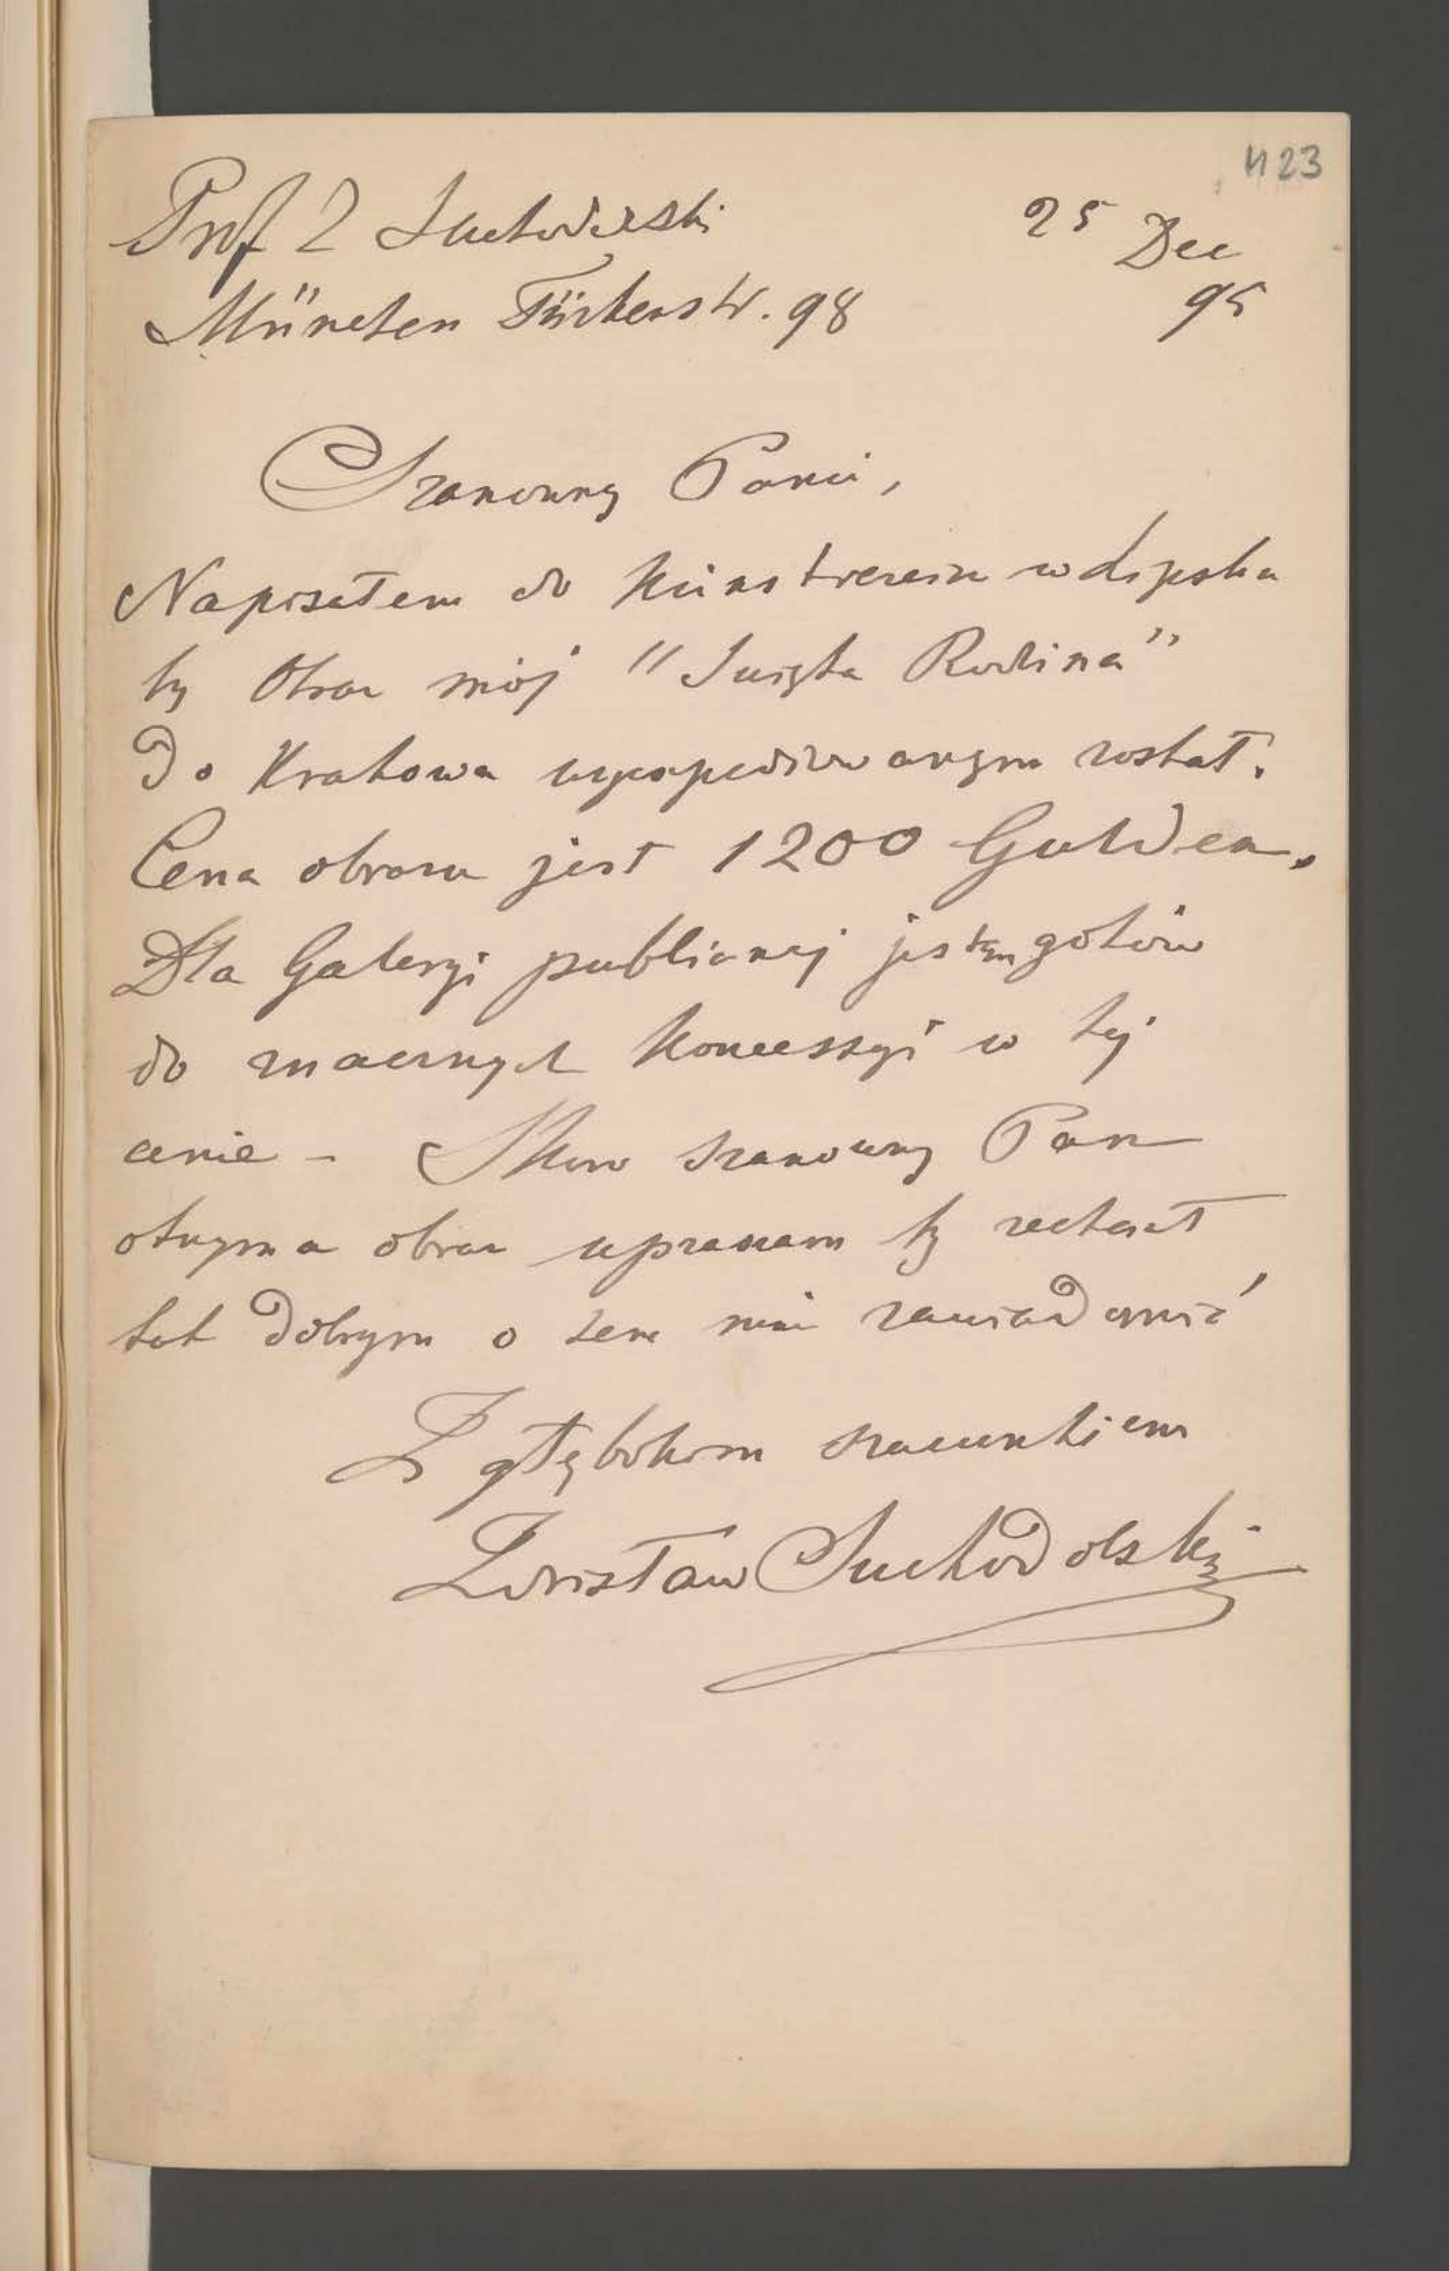 423
Prof Z Suchodolski 25 Dec
München Türkenstr. 98 95
Szanowny Panie,
Napisałem do Kunstverein w Lipsku
by Obraz mój "Święta Rodzina"
do Krakowa wyexpediowanym został.
Cena obrazu jest 1200 Gulden.
Dla Galeryi publicznej jestem gotów
do znacznych koncessyi w tej
cenie - Skoro szanowny Pan
otrzyma obraz upraszam by zechciał
tak dobrym o tem mię zawiadomić
Z głębokim szacunkiem
Zdzisław Suchodolski